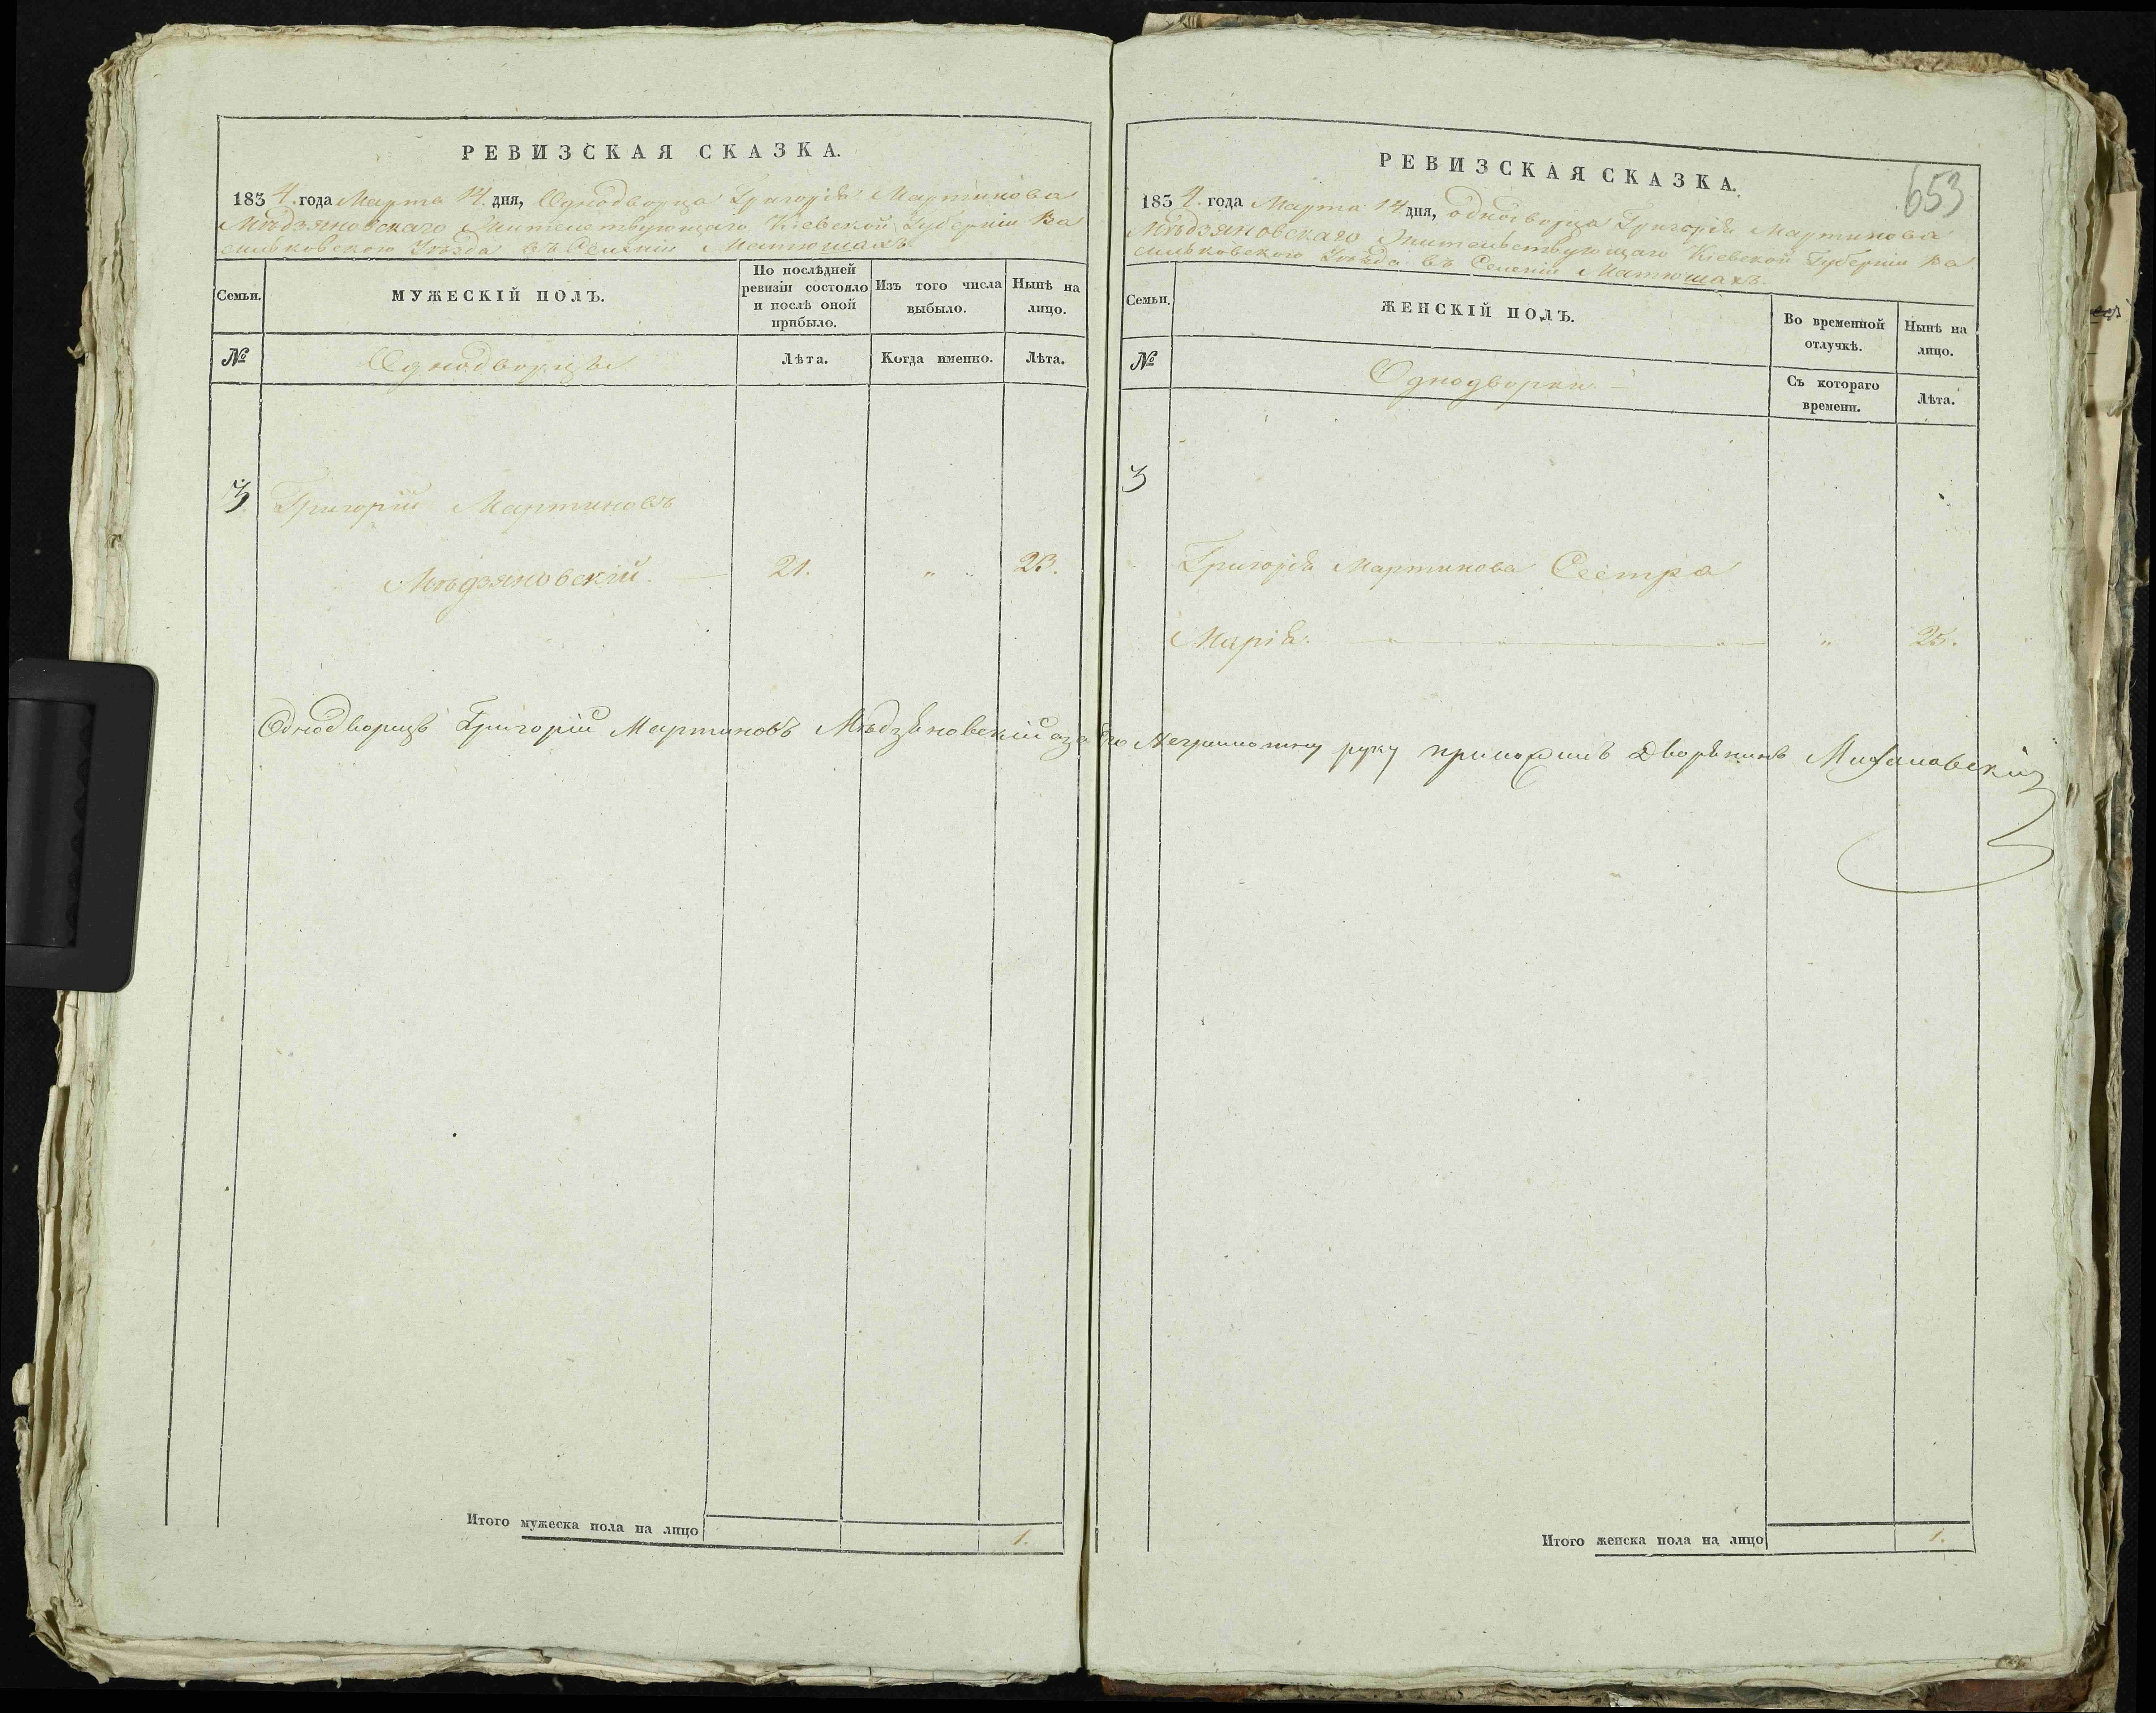 РЕВИЗСКАЯ СКАЗКА.
1854. года Марта 14. дня, Однодворца Григорія Мартинова
Мѣдзяновскаго Жительствующаго Кіевской Губерніи Ва
сильковского Уѣзда въ Селеніи Матюшахъ.
Семьи.
МУЖЕСКІЙ ПОЛЪ.
По послѣдней
ревизіи состояло
и послѣ оной
прибыло.
Изъ того числа
выбыло.
Нынѣ на
лицо.
№
Однодворцы
Лѣта.
Когда именно.
Лѣта.
3
Григорій Мартиновъ
Мѣдзяновскій. — 21. " " 23.
Однодворецъ Григорій Мартиновъ Мѣдзяновскій а за его неграмотну руку приложилъ Дворянинъ
Итого мужеска пола на лицо 1.
653
РЕВИЗСКАЯ СКАЗКА.
1854. года Марта 14 дня, однодворца Григорія Мартинова
Мѣдзяновскаго Жительствующаго Кіевской Губерніи Ва
сильковского Уѣзда въ Селеніи Матюшахъ.
Семьи.
ЖЕНСКІЙ ПОЛЪ.
Во временной
отлучкѣ.
Нынѣ на
лицо.
№
Однодворки —
Съ котораго
времени.
Лѣта.
3
Григорія Мартинова Сестра
Марія. — " — " — " — " 25.
Итого женска пола на лицо 1.